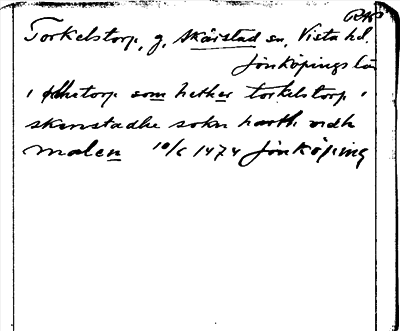 Torkelstorp, g, Skärstad sn, Vista hd.
Jönköpings län
i
som hether torkelstorp i
skerstadhe sokn hardh widh
malen 10/6 1474 Jönköping